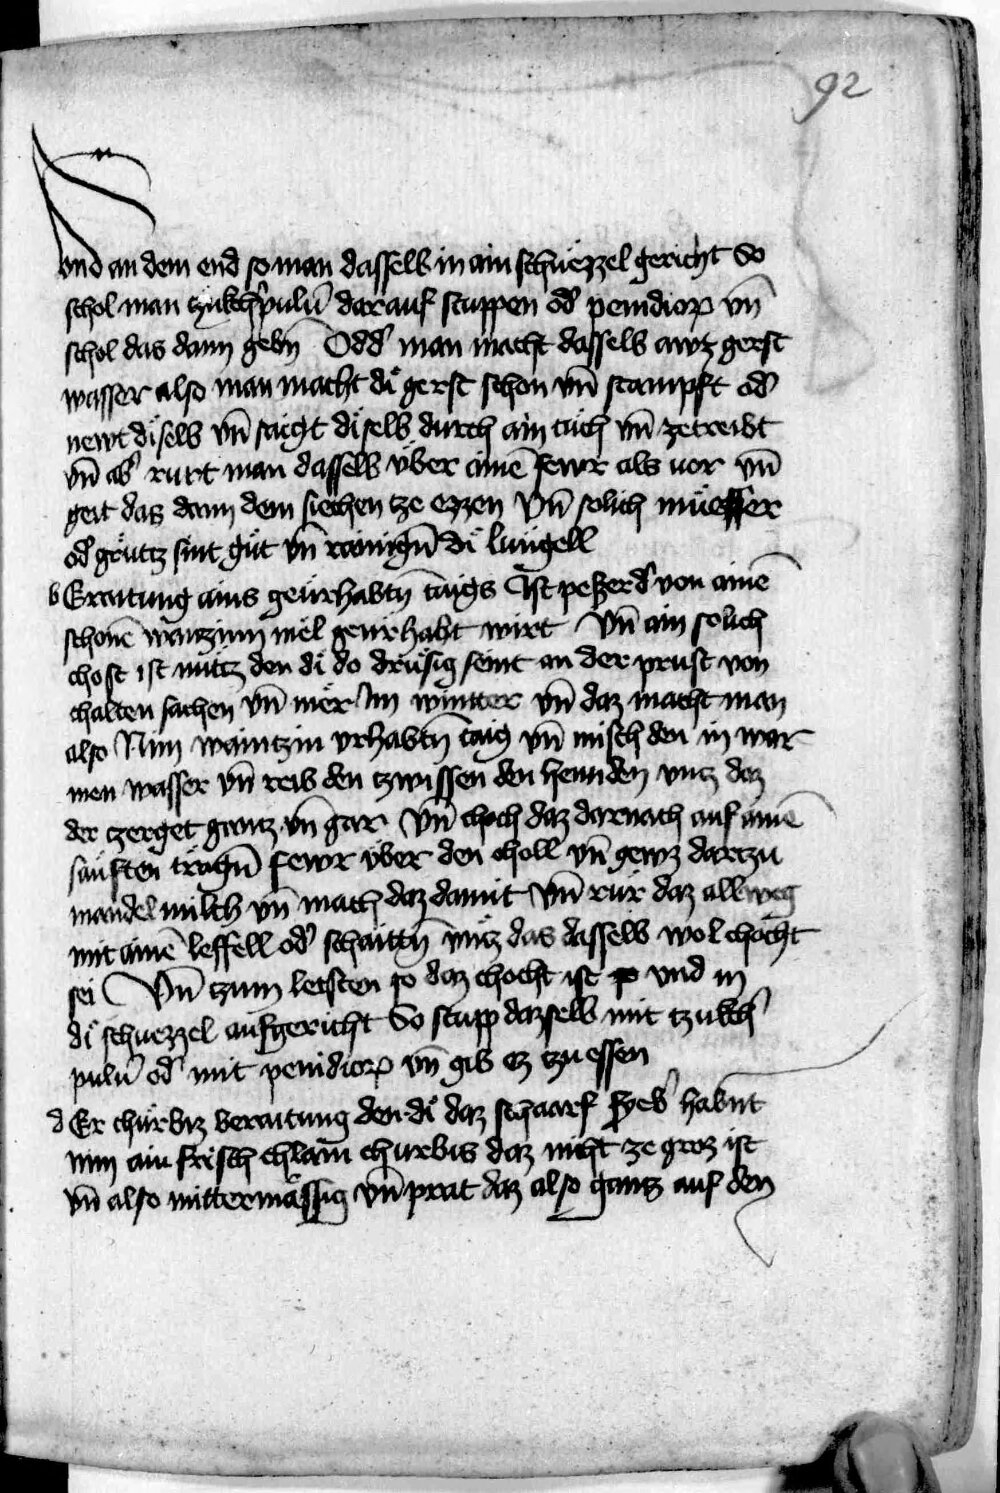 92
vnd an dem end so man dasselb in ain schüezzel gericht So
schol man tzukch'puluˀ darauf stuppen odˀ penidiorꝫ vn̄
schol das dann gebn̄ Oddˀ man macht dasselb awz gerst
wasser also man macht di gerst schon vn̄ stampft odˀ
newt diselb vn̄ saigt diselb durch ain tuch vn̄ zetreibt
vn̄ abˀ rurt man dasselb vber ainē fewr als uor vn̄
geit das dann dem siechen tze ezzen Vn̄ solich müesser
odˀ grütz sint güt vn̄ rainign̄ di lungell
b Eraitung ains geürhabtn̄ taigs Ist pezzer dˀ von ainē
schonē waitzinn mel geurhabt wirt Vn̄ ain solich
chost ist nütz den di do drüsig seint an der prust von
chalten sachen vn̄ mer Im wintter vn̄ daz macht man
also Nim waintzin vrhabtn̄ taig vn̄ misch den in war
men wasser vn̄ reib den tzwissen den henndn̄ vntz daz
der tzerget gantz vn̄ gar Vn̄ choch daz darnach auf ainē
sanften tragn̄ fewr vber den choll vn̄ gewz dartzu
mandelmilch vn̄ mach daz damit Vn̄ rür daz allweg
mit ainē leffell odˀ schaittn̄ vntz das dasselb wol chocht
sei Vn̄ tzum letsten so daz chocht ist vnd in
di schuezzel aufgericht So stupp dazselb mit tzukchˀ
puluˀ odˀ mit penidiorꝫ vn̄ gib ez tzu essen
d Er chürbiz beraitung den di daz scharf fyebˀ habnt
nim ain frisch chlain churbis daz nicht ze groz ist
vn̄ also mittermässig vn̄ prat daz also gantz auf den